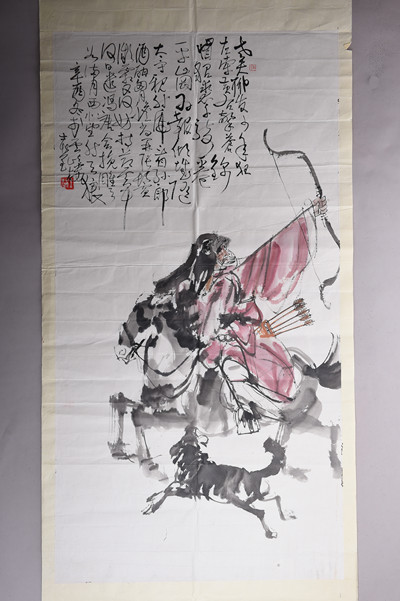 老夫聊发少年狂
左牵黄右擎苍锦
帽貂裘千骑卷
平冈为报倾城随
太守亲射虎看孙郎
酒酣胸胆尚开张
鬓微霜又何妨持节云中
何日遣冯唐会挽雕弓
如满月西北望射天狼
辛酉